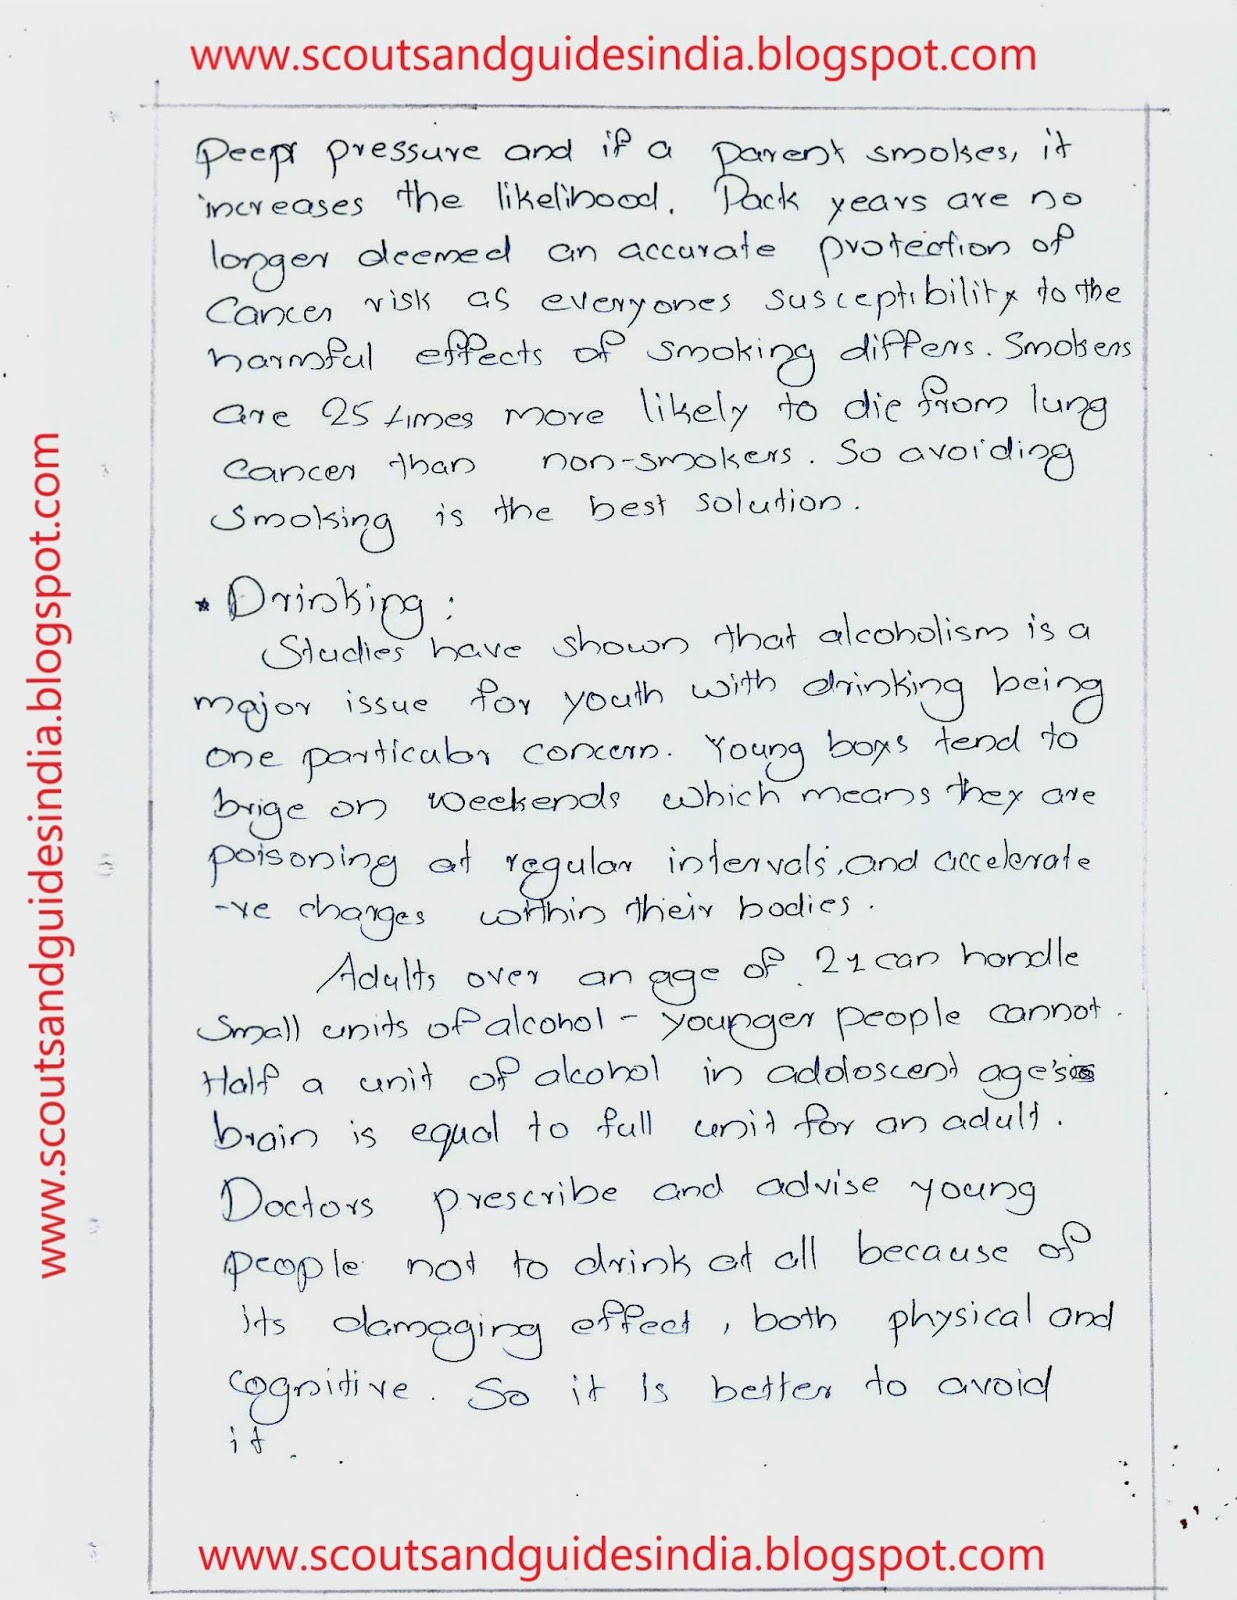 www.scoutsandguidesindia.blogspot.com
peer pressure and if a parent smokes, it
increases the likelihood. Pack years are no
longer deemed an accurate protection of
Cancer risk as everyones susceptibility to the
harmful effects of smoking differs. Smokers
are 25 times more likely to die from lung
cancer than non-smokers. So avoiding
smoking is the best solution.
* Drinking:
Studies have shown that alcoholism is a
major issue for youth with drinking being
one particular concern. Young boys tend to
brige on weekends which means they are
poisoning at regular intervals, and accelerate
-ve charges within their bodies.
Adults over an age of 21 can handle
small units of alcohol - younger people cannot.
Half a unit of alcohol in adoloscent age's
brain is equal to full unit for an adult.
Doctors prescribe and advise young
people not to drink at all because of
its damaging effect, both physical and
cognitive. So it is better to avoid
it.
www.scoutsandguidesindia.blogspot.com
www.scoutsandguidesindia.blogspot.com